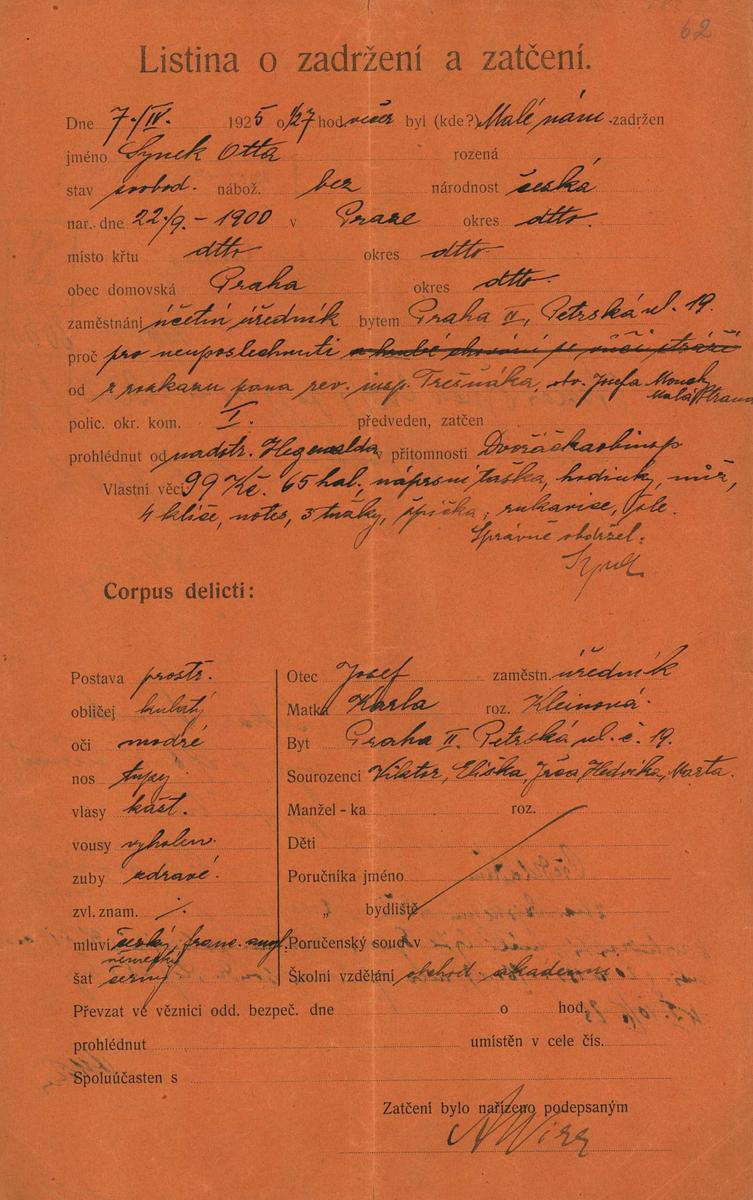 62
Listina o zadržení a zatčení.
Dne 7./IV. 1925 o 1/27 hod. večer byl (kde?) Malé nám. zadržen
jméno Synek Otta rozená
stav svobod. nábož. bez národnost česká
nar. dne 22./9. – 1900 v Praze okres dtto.
místo křtu dtto okres dtto
obec domovská Praha okres dtto.
zaměstnání účetní úředník bytem Praha II, Petrská ul. 19.
proč pro neuposlechnutí a hrubé chování se vůči stráži
od z rozkazu pana rev. insp. Trešňáka, Josefa
Malá Strana
polic. okr. kom. I. předveden, zatčen
prohlédnut od nadstr. Hegenvalda v přítomnosti
Vlastní věci 99 Kč. 65 hal. náprsní taška, hodinky, nůž,
4 klíče, notes, 3 tužky, špička, rukavice, hole.
Správně obdržel:
Corpus delicti:
Postava prostř.
obličej kulatý
oči modré
nos tupý
vlasy kašt.
vousy vyholen.
zuby zdravé.
zvl. znam. ·/.
mluví český, franc. angl.
německy
šat černý
Otec Josef zaměstn. úředník
Matka Karla roz. Kleinová.
Byt Praha II. Petrská ul. č. 19.
Sourozenci Viktor, Eliška, Hedvika, Marta.
Manžel - ka roz.
Děti
Poručníka jméno
„ bydliště
Poručenský soud v
Školní vzdělání obchod. akademie
Převzat ve věznici odd. bezpeč. dne o hod.
prohlédnut umístěn v cele čís.
Spoluúčasten s
Zatčení bylo nařízeno podepsaným